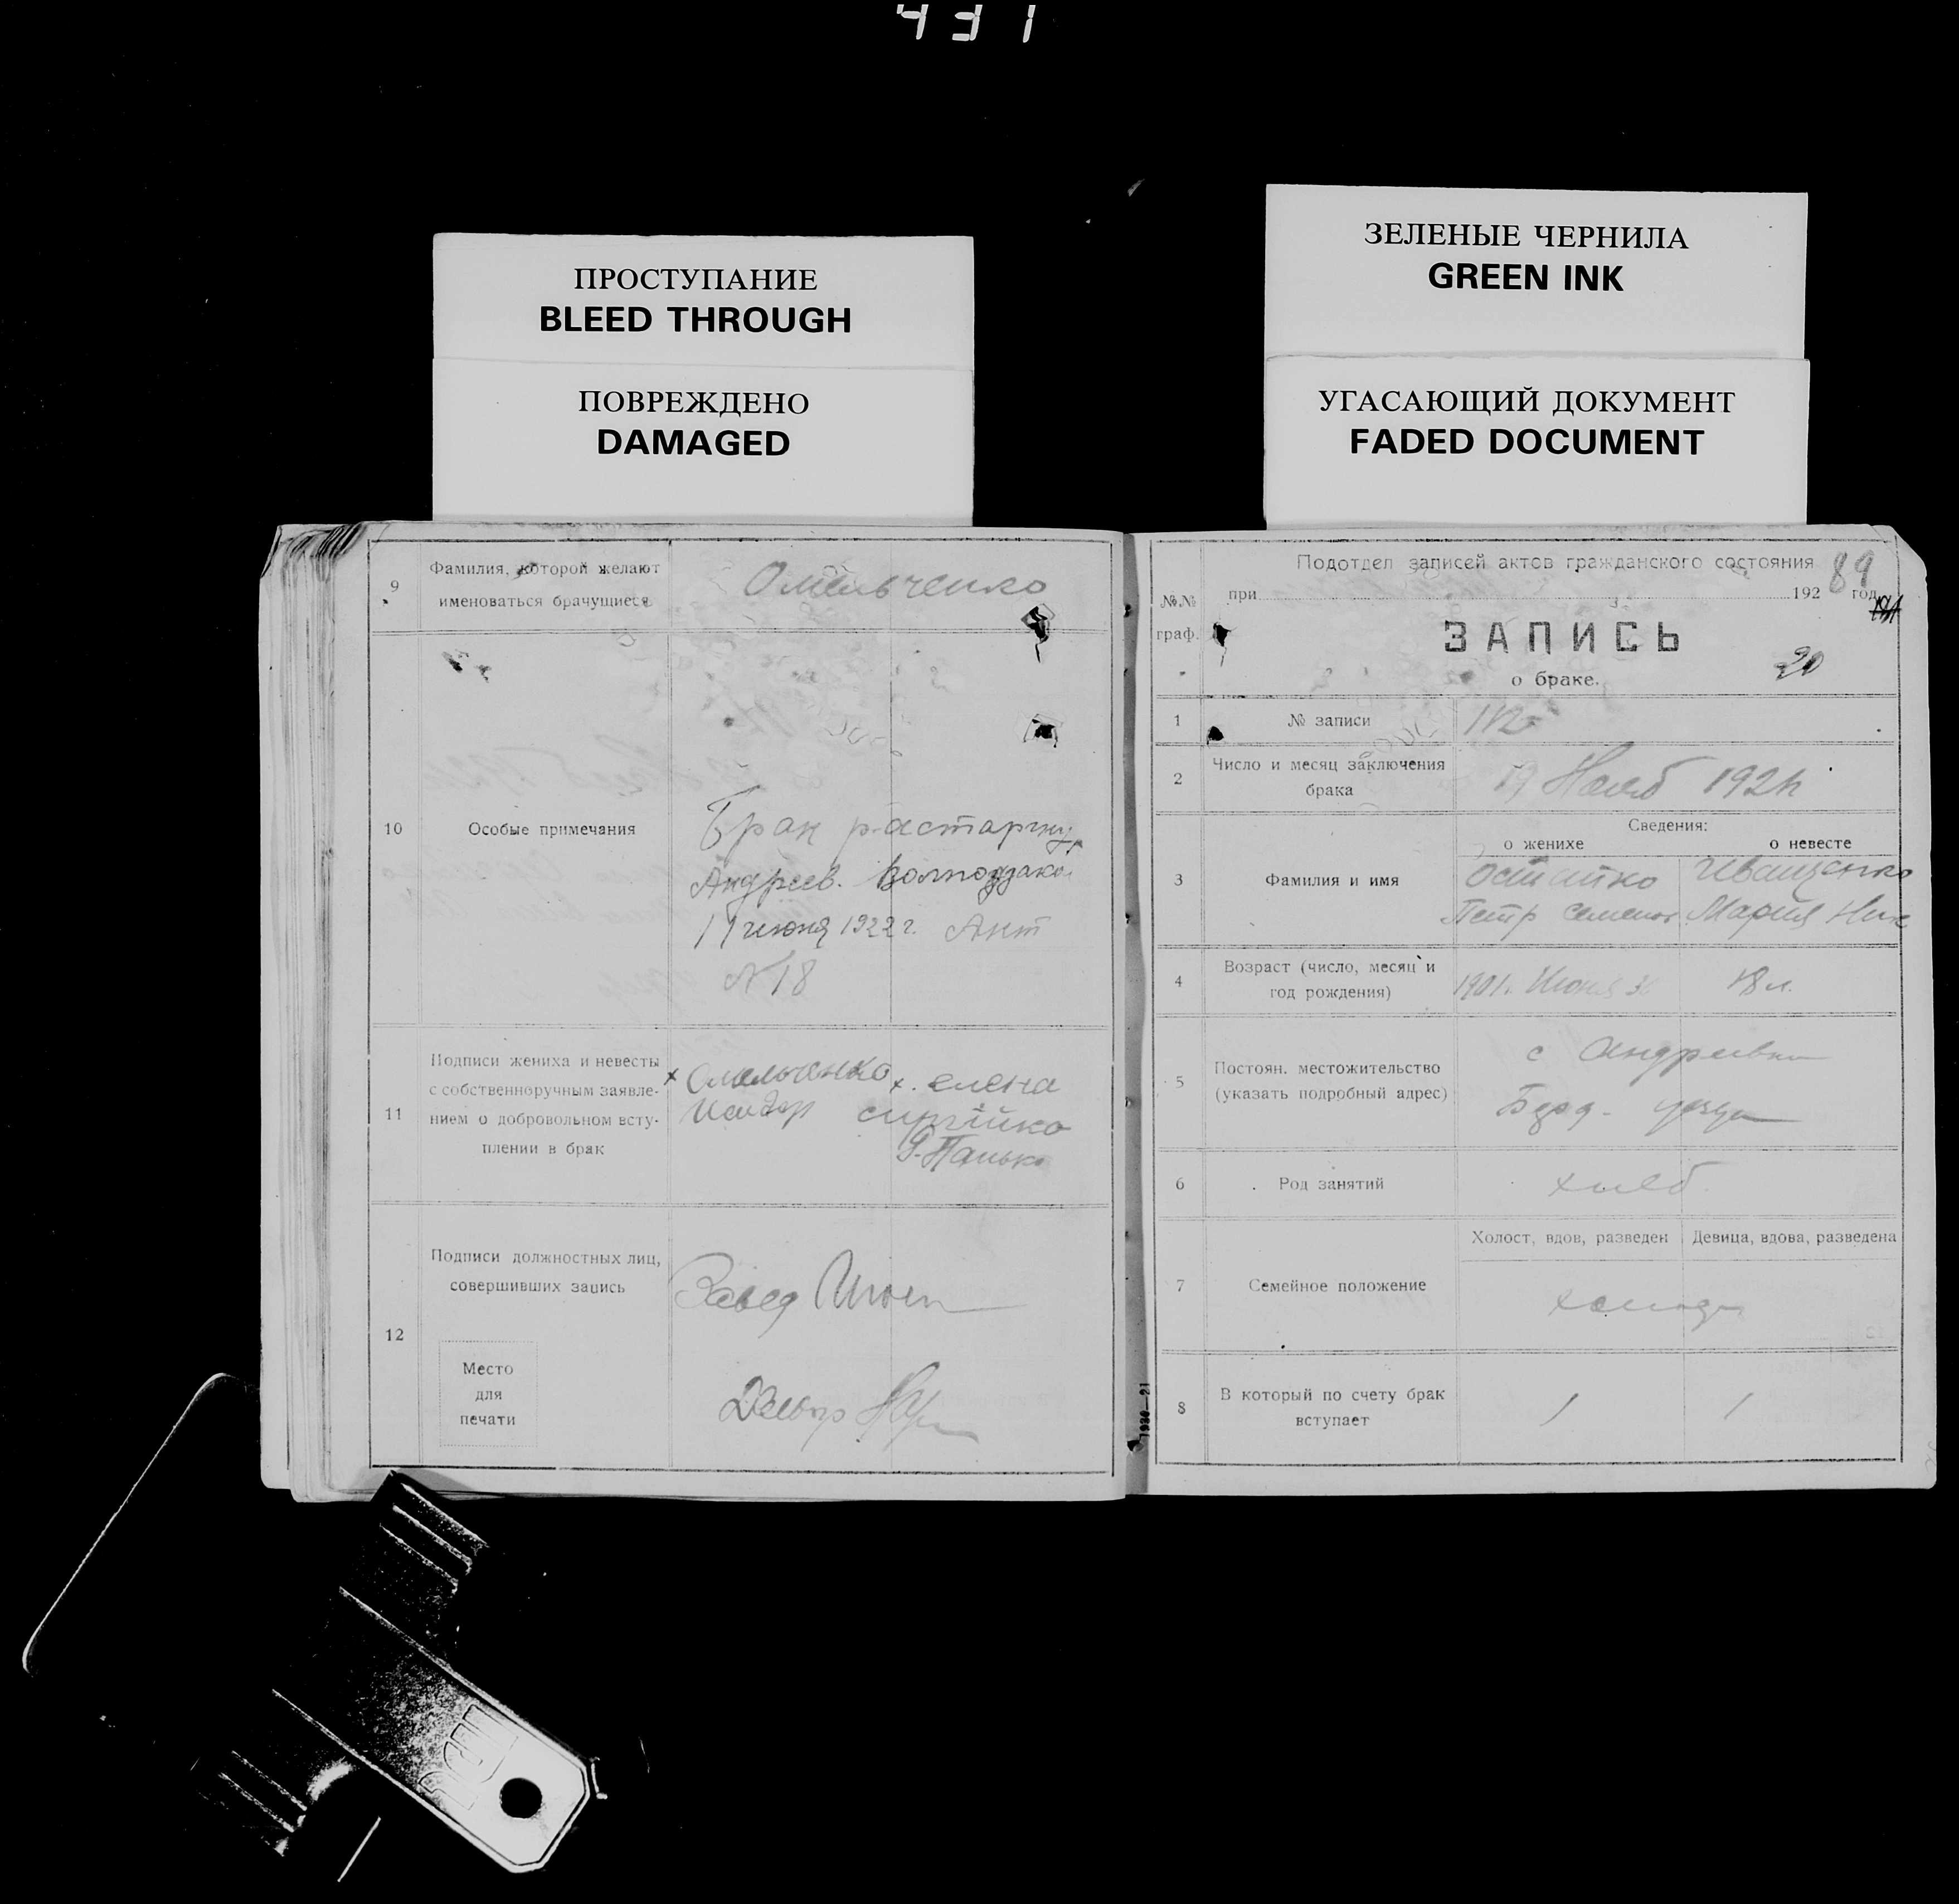 431
ПРОСТУПАНИЕ
BLEED THROUGH
ПОВРЕЖДЕНО
DAMAGED
ЗЕЛЕНЫЕ ЧЕРНИЛА
GREEN INK
УГАСАЮЩИЙ ДОКУМЕНТ
FADED DOCUMENT
9
Фамилия, которой желают
именоваться брачущиеся
Омельченко
10
Особые примечания
Брак расторгну
Андреев.
июня 1922 г. Акт
N 18
11
Подписи жениха и невесты
с собственноручным заявле-
нием о добровольном всту-
плении в брак
х Омельченко х. елена
12
Подписи должностных лиц,
совершивших запись
Завед
Место
для
печати
Подотдел записей актов гражданского состояния
89
№.№
граф.
при 192 год
ЗАПИСЬ
20
о браке.
1
№ записи
2
Число и месяц заключения
брака
19 Нояб
Сведения:
о женихе
о невесте
3
Фамилия и имя
Остапко Иващенко
Петр Семенов Мария Ник
4
Возраст (число, месяц и
год рождения)
1901. Июня
18 л.
5
Постоян. местожительство
(указать подробный адрес)
с Андреевки
Берд. уезда
6
Род занятий
хлеб
7
Семейное положение
Холост, вдов, разведен
Девица, вдова, разведена
8
В который по счету брак
вступает
1
1
1920—21